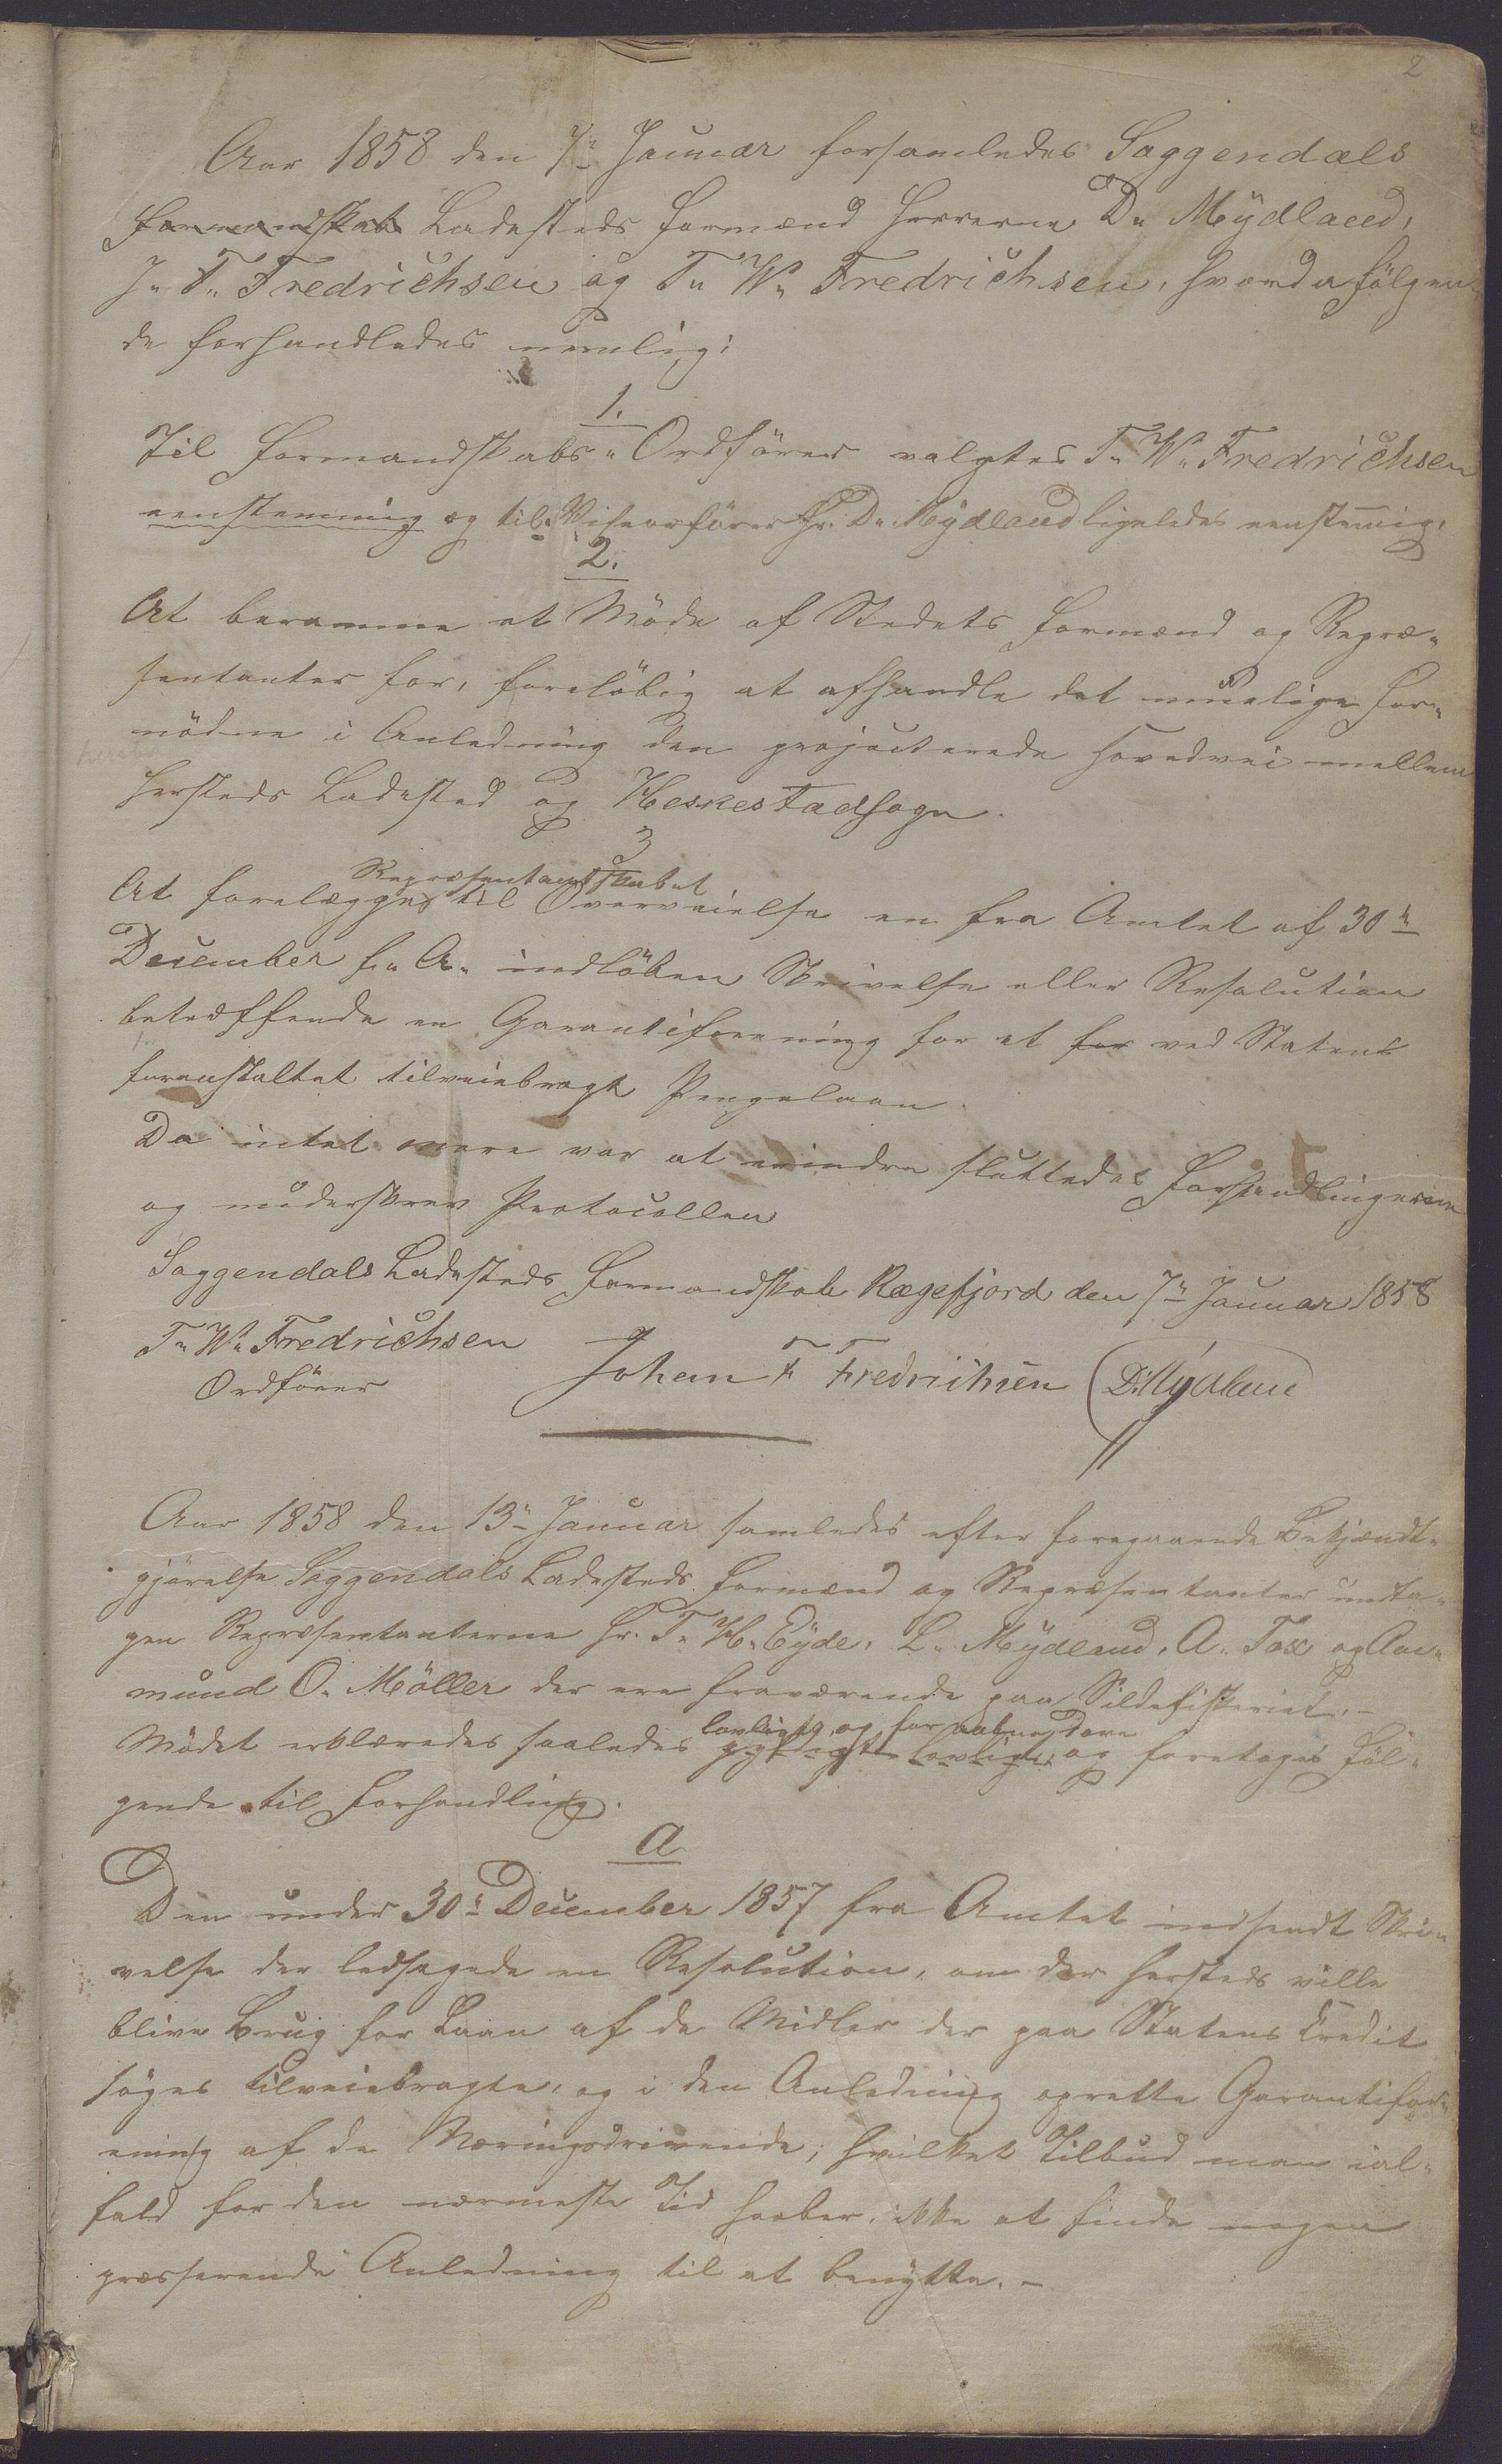 2
Aar 1858 den 7de Januar forsamledes Soggendals
Formandskab Ladesteds Formænd Herrerne D. Mydland,
J. F. Fredrichsen og T. W. Fredrichsen, hvorda fölgen-
de forhandledes nemlig:
1.
Til Formandskabs-Ordförer valgtes T. W. Fredrichsen
eenstemmig og til Viseorförer Hr. D. Mydland ligeledes eenstemig.
2.
At beramme et Möde af Stedets Formænd og Repræ-
sentanter for, foreløbig at afhandle det muelige For-
nödne i Anledning den projecterede Hovedvei mellem
Hersteds Ladested og Heskestadsogn.
3
Repræsentantskabet
At forelægges til Overveielse en fra Amtet af 30te
December f. A. indlöben Skrivelse eller Resolution
betræffende en Garantiforening for et for ved Statens
foranstaltet tilveiebragt Pengelaan.
Da intet mere var at erindre sluttedes Forhandlingerne
og underskrev Protocollen
Soggendals Ladesteds Formandskab Rægefjord den 7de Januar 1858
T. W. Fredrichsen
Ordförer
Johan F Fredrichsen D. Mydland
Aar 1858 den 13de Januar samledes efter foregaaende Bekjendt-
gjörelse Soggendals Ladesteds Formænd og Repræsentanter undta-
gen Repræsentanterne Hr. T. H. Eyde, L. Mydland, A. Tox og Aa-
mund O. Möller der ere fraværende paa Sildefiskeriet.-
lovligtg og for aabne Döre
Mödet erklæredes saaledes gyldigt lovligt, og foretoges Föl-
gende til Forhandling.
a
Den under 30te December 1857 fra Amtet indsendt Skri-
velse der ledsagede en Resolution, om der hersteds ville
blive Brug for Laan af de Midler der paa Statens Credit
söges tilveiebragte, og i den Anledning oprette Garantifor-
ening af de Næringsdrivende; hvilket Tilbud man ial-
fald for den nærmeste Tid haaber, ikke at finde nogen
presserende Anledning til at benytte.-